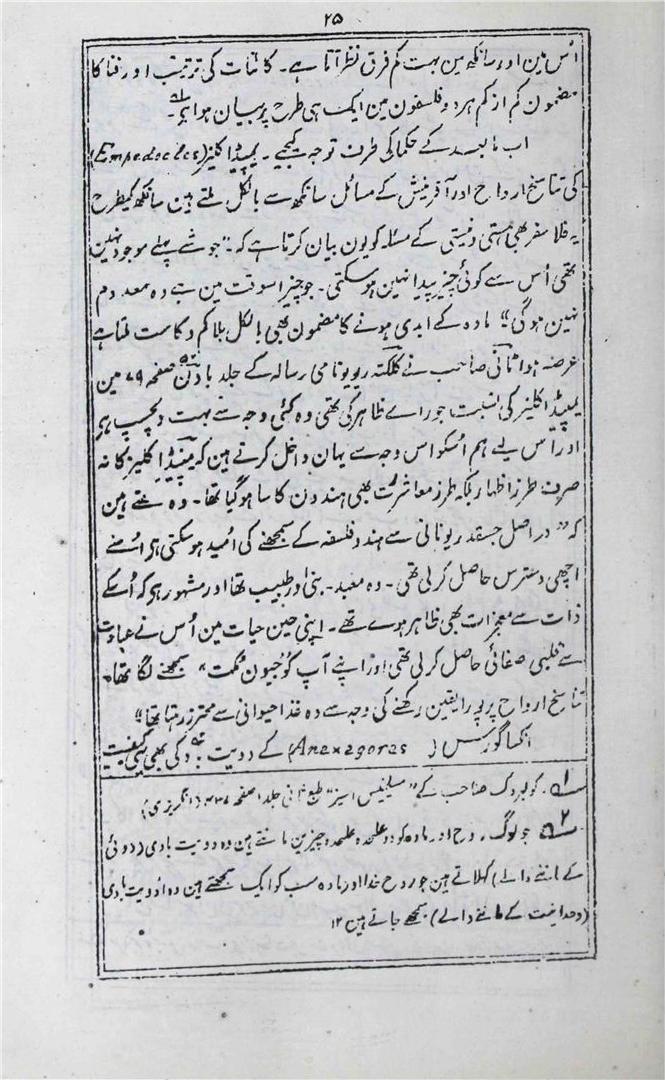 ۲۵
اُس مین اور سانکھ مین بہت کم فرق نظر آتا ہے۔ کائنات کی ترتیب اور فنا کا
مضمون کم از کم ہر دو فلسفون مین ایک ہی طرح پر بیان ہوا ہے۔
اب مابعد کے حکما کی طرف توجہ کیجیے۔ یمپیڈاکلیز (Empedocles)
کی تناسخ ارواح اور آفرینش کے مسائل سانکھ سے بالکل ملتے ہین سانکھ کیطرح
یہ فلاسفر بھی ہستی و نیستی کے مسئلہ کو یون بیان کرتا ہے کہ۔ "جو شے پہلے موجود نہین
تھی اُس سے کوئی چیز پیدا نہین ہو سکتی۔ جو چیز اسوقت مین ہے وہ معدوم
نہین ہوگی" مادہ کے ابدی ہونے کا مضمون بھی بالکل بلا کم و کاست ملتا ہے
عرصہ ہوا ٹانی صاحب نے کلکتہ ریویو نامی رسالہ کے جلد باون صفحہ ۷۹ مین
یمپیڈاکلیز کی نسبت جو راے ظاہر کی تھی وہ کئی وجہ سے بہت دلچسپ ہے
اور اس لیے ہم اُسکو اس وجہ سے یہان داخل کرتے ہین کہ یمپیڈاکلیز کا نہ
صرف طرز اظہار بلکہ طرز معاشرت بھی ہندون کا سا ہو گیا تھا۔ وہ کہتے ہین
کہ "در اصل جسقدر یونانی سے ہندو فلسفہ کے سمجھنے کی اُمید ہو سکتی ہے اُسنے
اچھی دسترس حاصل کر لی تھی۔ وہ معبد۔ نبی اور طبیب تھا اور مشہور ہے کہ اُسکے
ذات سے معجزات بھی ظاہر ہوے تھے۔ اپنی حین حیات مین اُس نے عبادت
سے قلبی صفائی حاصل کر لی تھی اور اپنے آپ کو "جیون مُکت" سمجھنے لگا تھا۔
تناسخ ارواح پر پورا یقین رکھنے کی وجہ سے وہ غذا حیوانی سے محترز رہتا تھا"
انکساگورس (Anexagoras) کے دویت باد کی بھی یہی کیفیت
۱؎۔ کولبروک صاحب کے "مسیلینیس اسیز" طبع ثانی جلد ا صفحہ ۴۳۷ (انگریزی)
۲؎ جو لوگ روح اور مادہ کو دو علٰحدہ علٰحدہ چیزین مانتے ہین وہ دویت بادی (دوئی
کے ماننے والے) کہلاتے ہین جو روح خدا اور مادہ سب کو ایک سمجھتے ہین وہ ادویت بادی
(وحدانیت کے ماننے والے) سمجھے جاتے ہین ۱۲